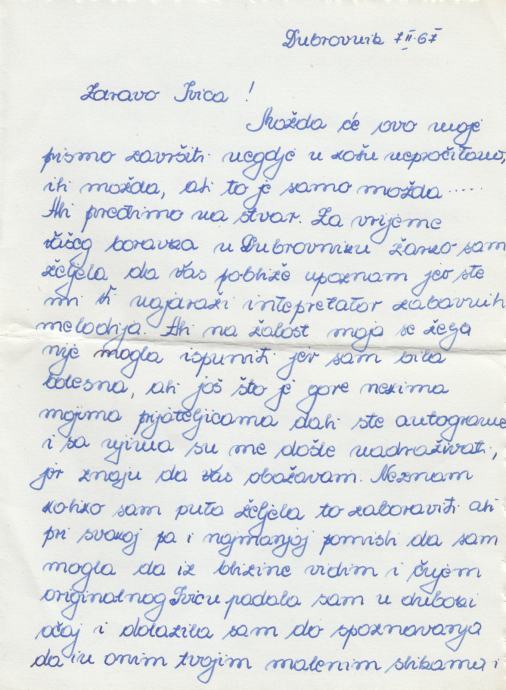 Dubrovnik 7.II.67
Zdravo Ivica !
Možda će ovo moje
pismo završiti negdje u košu nepročitano,
ili možda, ali to je samo možda.....
Ali pređimo na stvar. Za vrijeme
Vašeg boravka u Dubrovniku žarko sam
željela da Vas pobliže upoznam jer ste
mi Vi najdraži intepretator zabavnih
melodija. Ali na žalost moja se želja
nije mogla ispuniti jer sam bila
bolesna, ali još što je gore nekima
mojima prijateljicama dali ste autograme
i sa njima su me došle nadraživati,
jer znaju da Vas obožavam. Neznam
koliko sam puta željela to zaboraviti ali
pri svakoj pa i najmanjoj pomisli da sam
mogla da iz blizine vidim i čujem
originalnog Ivicu padala sam u duboki
očaj i dolazila sam do spoznavanja
da su onim tvojim malenim slikama i